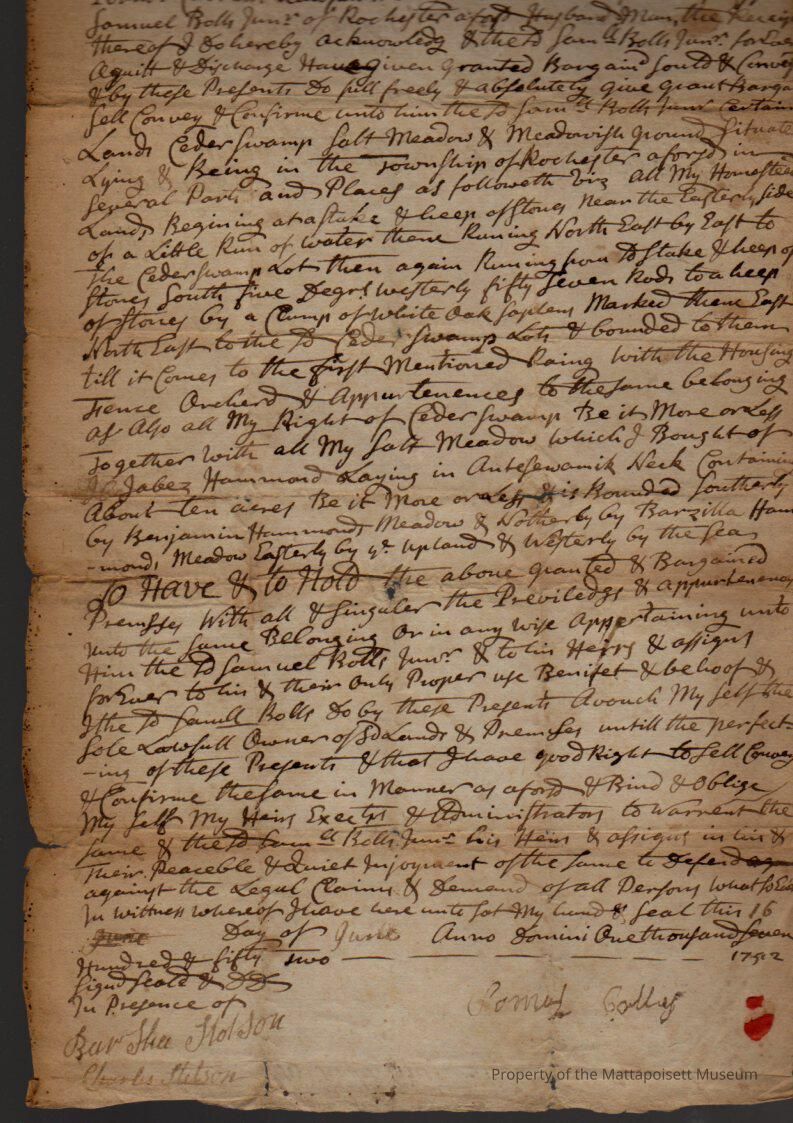 Samuel Bolls Junr of Rochester afords Husband Man, the Receip
thereof I Do hereby acknowledg & the sd Samll Bolls Junr for Ever
Aquitt & Discharge Have given granted Bargaind sould & Convey
& by these Presents Do full freely & absolutely give grant Barga
Sell Convey & Confirme unto him the sd Samll Bolls Junr Certain
Lands Ceder swamp Salt Meadow & Meadowish ground Situate
Lying & Being in the Township of Rochester aforsd in
Several Parts and Places as followeth viz all My Homestea
Lands Begining at a stake & heep of stones near the Easterly side
of a Little Run of water thence Runing North East by East to
the Ceder swamp Lot then again Runing from sd Stake & heep of
Stones South five Degrs westerly fifty Seven Rods to a heep
of stones by a Clump of white Oak saplens Marked thence East
North East to the sd Ceder swamp Lots & bounded to them
till it Comes to the first Mentioned Raing with the Housing
Fence Orcherd & Appurtenences to the same belonging
as Also all My Right of Ceder swamp Be it More or Less
Together with all My Salt Meadow which I Bought of
Jabez Hammond Laying in Antesewamik Neck Containin
About Ten acres Be it More or Less & is Bounded Southerly
by Benjamin Hammonds Meadow & Notherly by Barzilla Ham
-monds Meadow Easterly by ye upland & Westerly by the Sea
To Have & to Hold the above granted & Bargained
Premsses With all & Singuler the Previledgs & appurtenences
unto the same Belonging Or in any wise Appertaining unto
Him the sd Samuel Bolls Junr & to his Heirs & assigns
for Ever to his & their Only Proper use Benifet & behoof &
I the sd Samll Bolls Do by these Presents Avouch My self the
Sole Lawfull Owner of sd Lands & Premses untill the perfect-
-ing of these Presents & that I have good Right to Sell Convey
& Confirme the same in Manner as aforsd & Bind & Oblige
My Self My Heirs Exectrs & Administrators to warrent the
same & the sd Samll Bolls Junr his Heirs & assigns in his &
Their Peaceble & Quiet Injoyment of the same to Defend
against the Legal Claims & Demand of all Persons whatsoEve
In wittness whereof I have here unto set My hand & seal this 16
June Day of June Anno Domini One thousand Seven
Hundred & fifty two 1752
Signd Seald & DD
In Presence of
Samuel Bolls
Barsha Stetson
Charles Stetson
Property of the Mattapoisett Museum